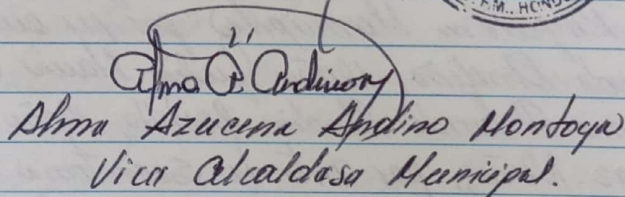 F.M., HONDU
Alma A. Andino M
Alma Azucena Andino Montoya
Vice Alcaldesa Municipal.